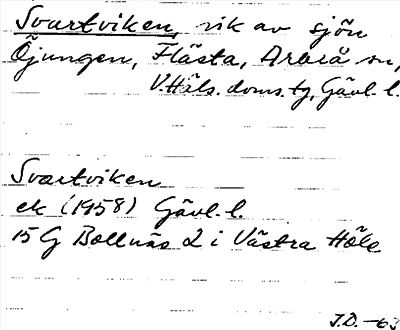 Svartviken, vik av sjön
Öjungen, Flästa, Arbrå sn,
V.Häls. doms. tg, Gävl. l.
Svartviken
ek (1958) Gävl. l.
15 G Bollnäs 2 i Västra Höle
J.D. -63